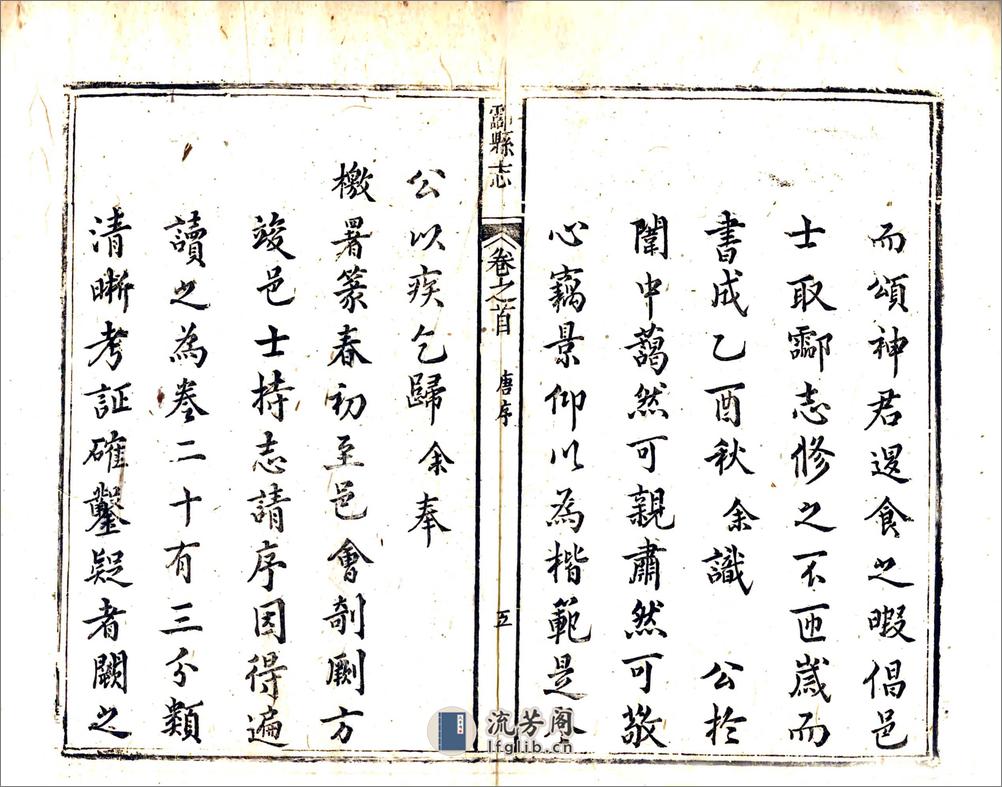 而頌神君退食之暇倡邑
士取酃志修之不匝歲而
書成乙酉秋余識 公於
闈中藹然可親肅然可敬
心竊景仰以為楷範是
酃縣志
卷之首
唐序
五
公以疾乞歸余奉
檄署篆春初至邑會剞劂方
竣邑士持志請序因得遍
讀之為卷二十有三分類
清晰考証確鑿疑者闕之
流芳阁
lfglib.cn